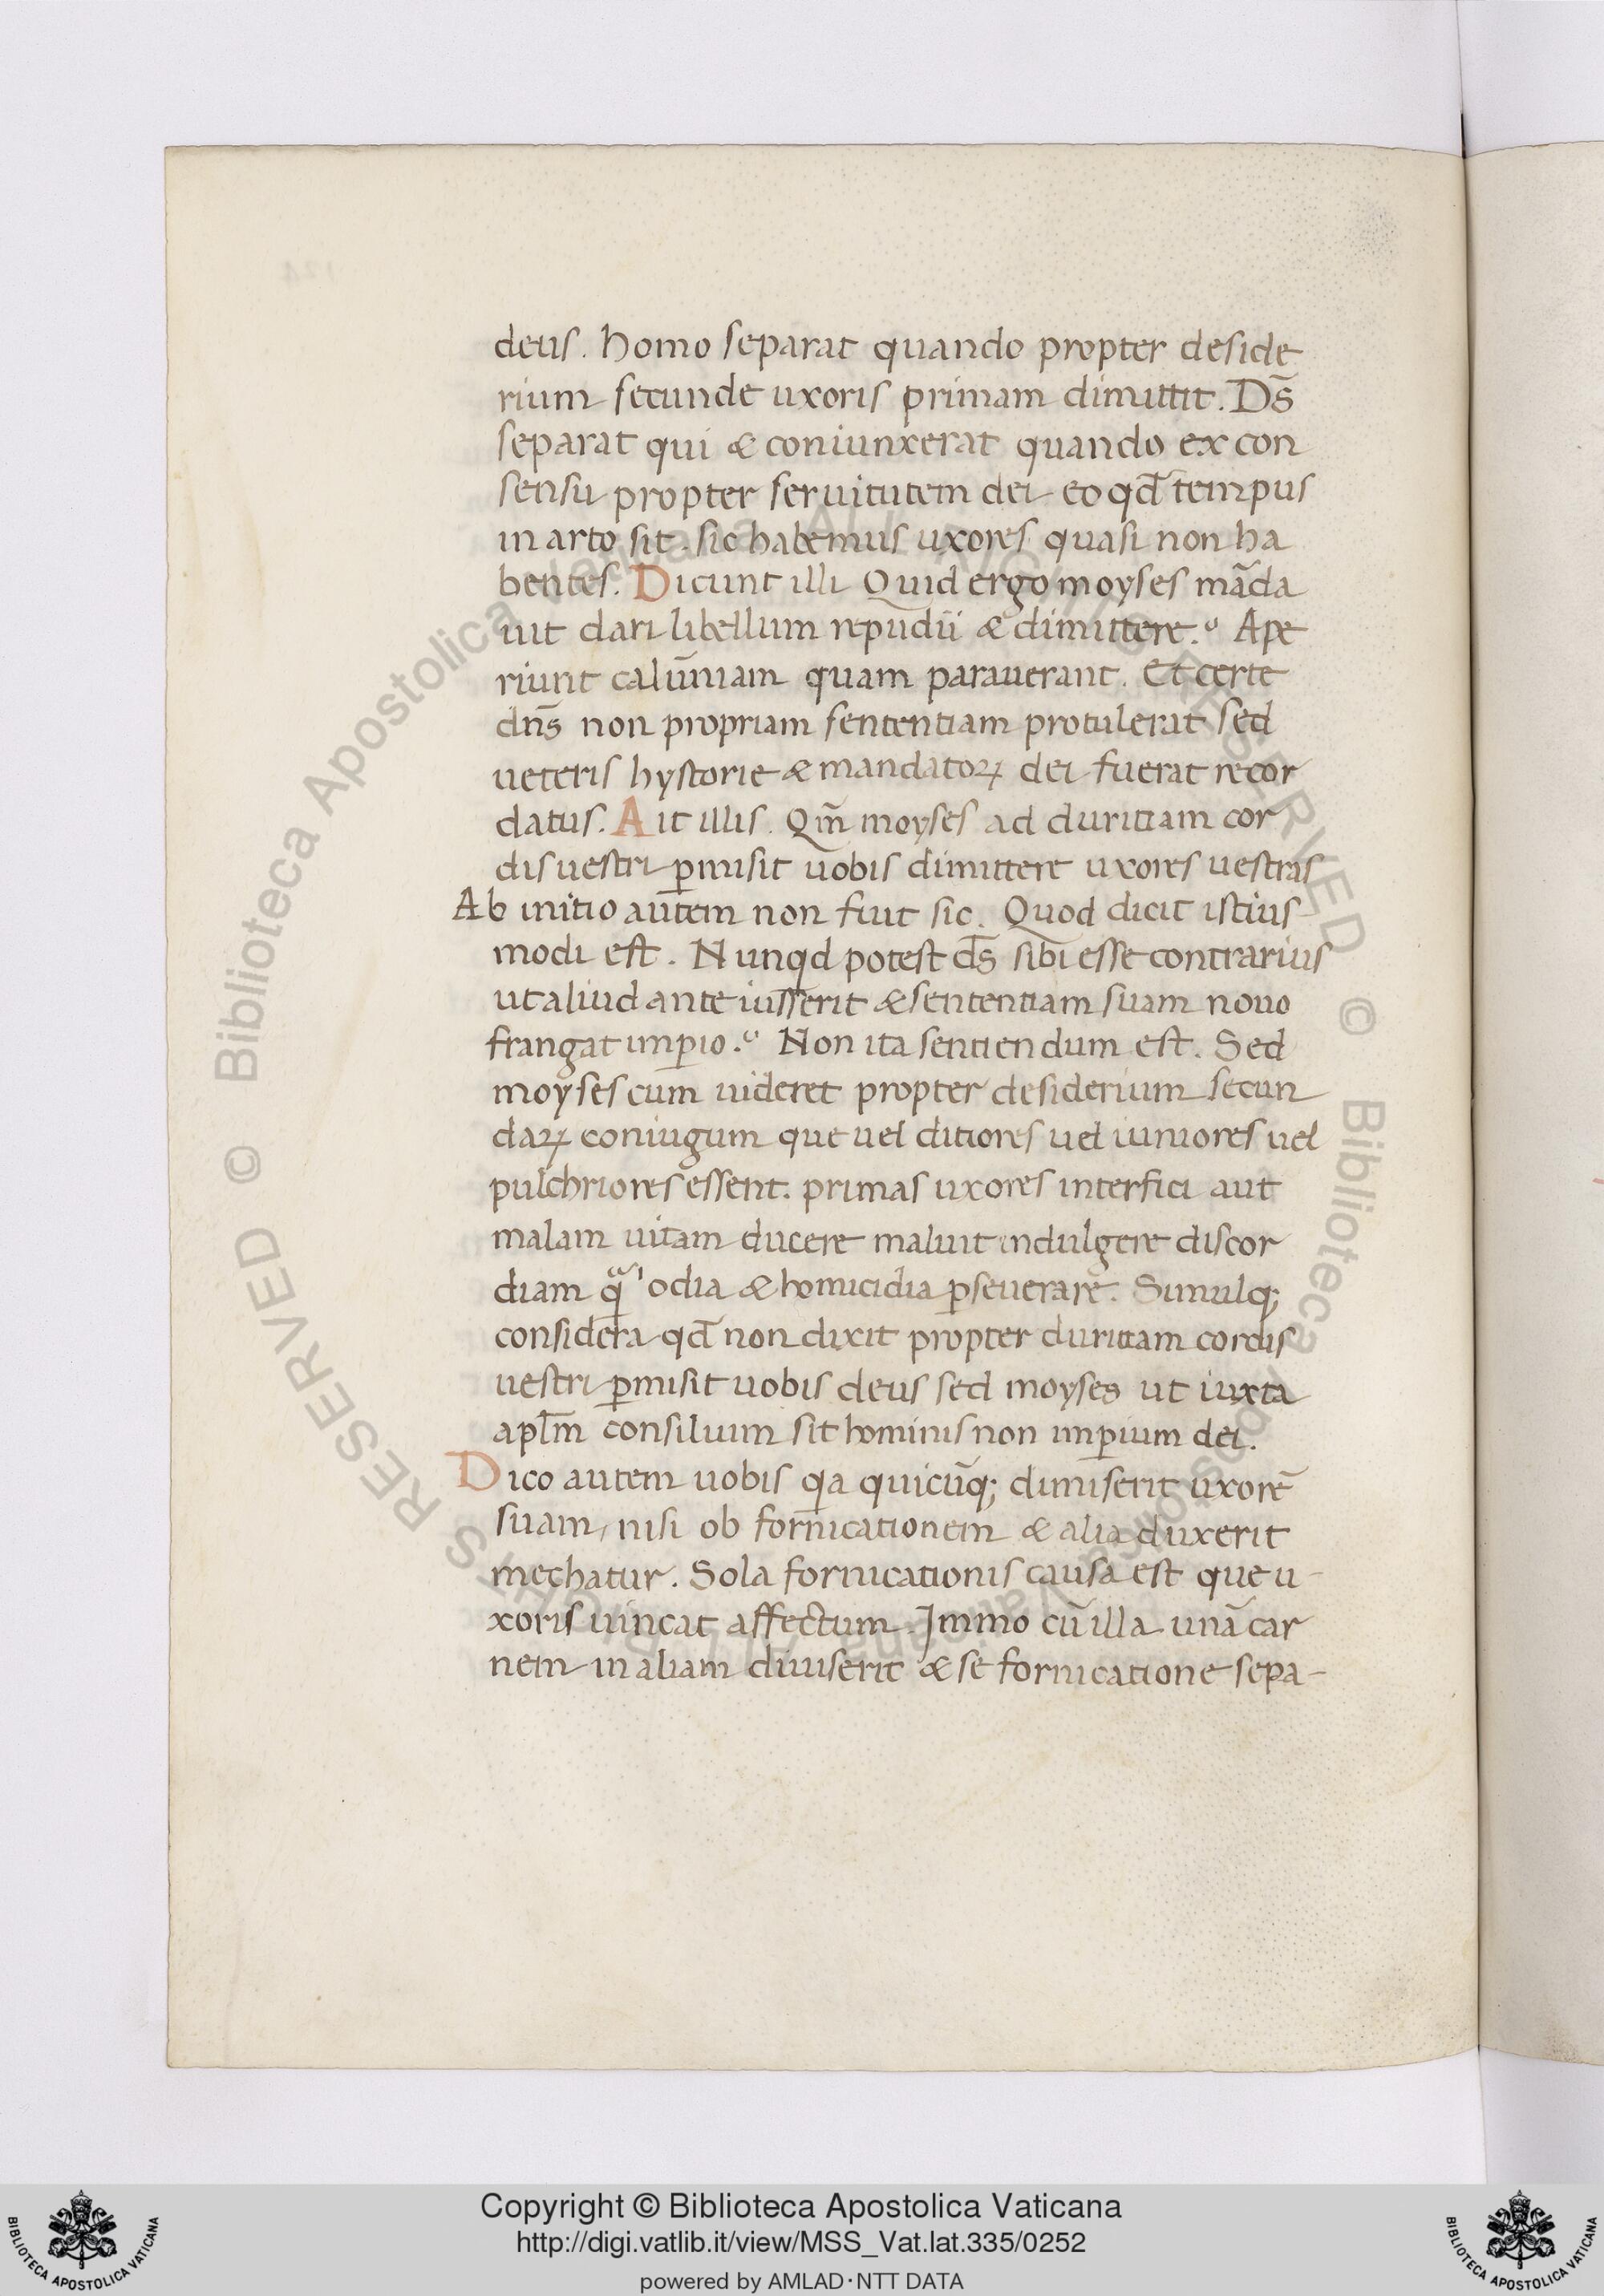 deus. homo separat quando propter deside
rium secunde uxoris primam dimittit. Ds̄
separat qui & coniunxerat quando ex con
sensu propter seruitutem dei eo qd̄ tempus
in arto sit. sic habemus uxores quasi non ha
bentes. Dicunt illi Quid ergo moyses mādа
uit dari libellum repudii & dimittere? Ape
riunt calūniam quam parauerant. Et certe
dn̄s non propriam sententiam protulerat sed
ueteris hystorie & mandatoꝝ dei fuerat recor
datus. Ait illis. Qm̄ moyses ad duritiam cor
dis uestri ꝑmisit uobis dimittere uxores uestras
Ab initio autem non fiut sic. Quod dicit istius
modi est. Nunqd potest ds̄ sibi esse contrarius
ut aliud ante iusserit & sententiam suam nouo
frangat imꝑio? Non ita sentiendum est. Sed
moyses cum uideret propter desiderium secun
daꝝ coniugum que uel ditiores uel iuniores uel
pulchriores essent. primas uxores interfici aut
malam uitam ducere maluit indulgere discor
diam qᷓ odia & homicidia ꝑseuerare. Simulq;
considera qd̄ non dixit propter duritiam cordis
uestri ꝑmisit uobis deus sed moyses ut iuxta
apl̄m consilium sit hominis non imꝑium dei.
Dico autem uobis qa quicūq; dimiserit uxorē
suam, nisi ob fornicationem & alia duxerit
mechatur. Sola fornicationis causa est que u-
xoris uincat affectum. Immo cū illa unā car
nem in aliam diuiserit & se fornicatione sepa-
Copyright © Biblioteca Apostolica Vaticana
http://digi.vatlib.it/view/MSS_Vat.lat.335/0252
powered by AMLAD·NTT DATA
BIBLIOTECA APOSTOLICA VATICANA
BIBLIOTECA APOSTOLICA VATICANA